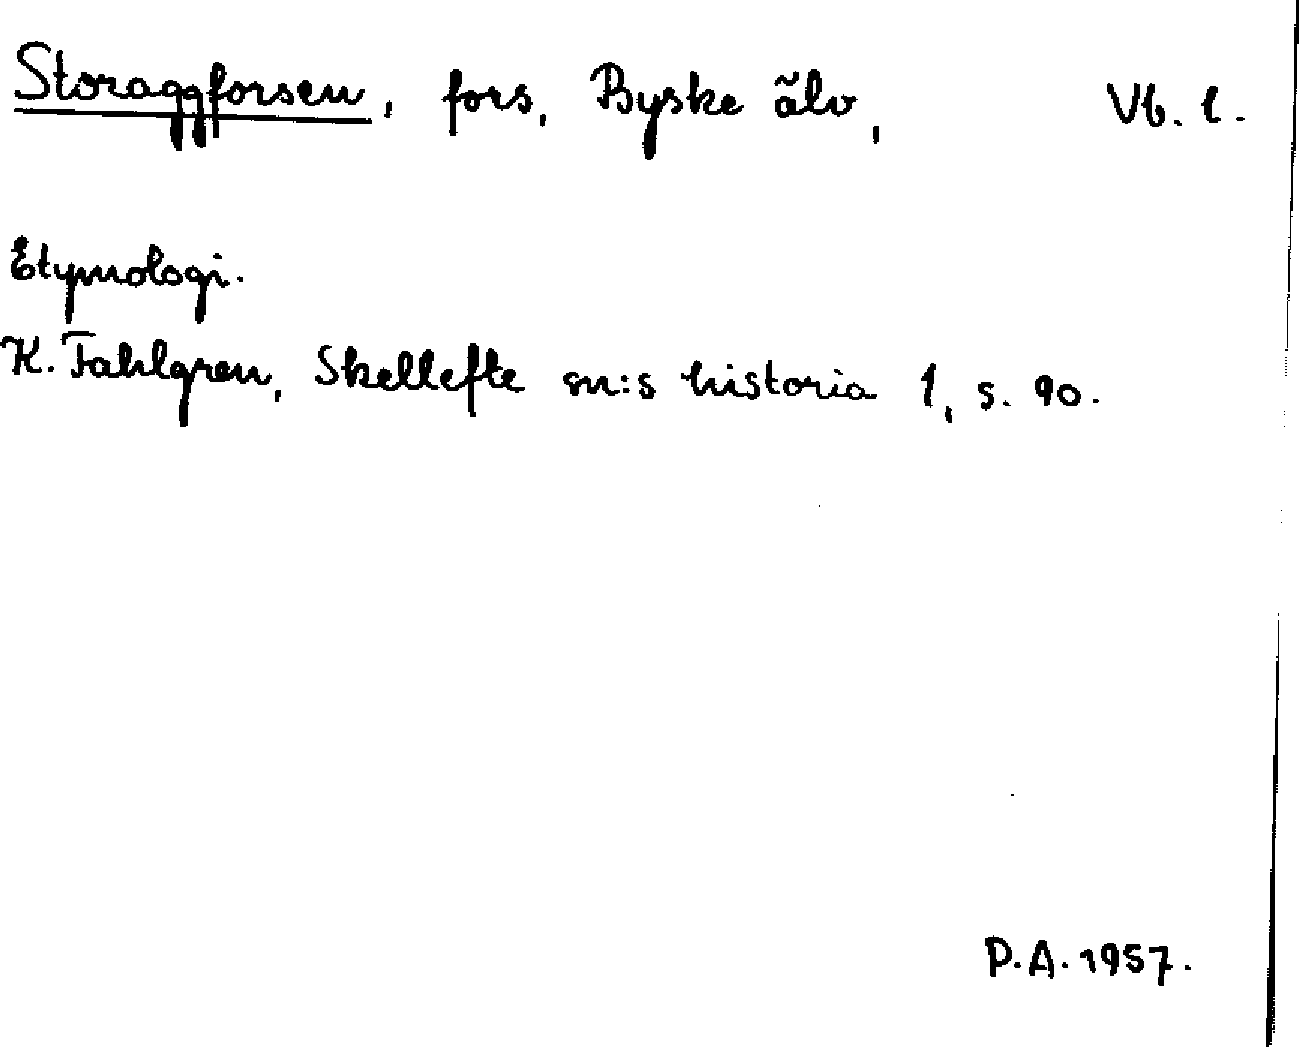 Storaggforsen, fors, Byske älv, Vb. l.
Etymologi.
K. Fahlgren, Skellefte sn:s historia 1, s. 90.
P.A. 1957.